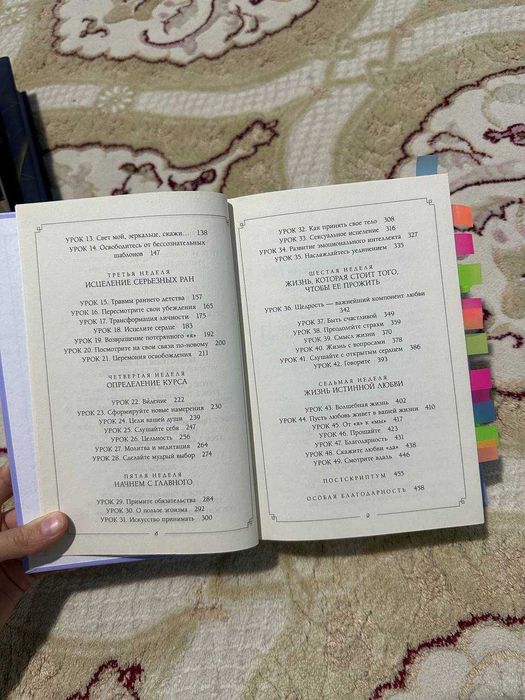 УРОК 13. Свет мой, зеркальце, скажи... 138
УРОК 14. Освободитесь от бессознательных
шаблонов 147
ТРЕТЬЯ НЕДЕЛЯ
ИСЦЕЛЕНИЕ СЕРЬЕЗНЫХ РАН
УРОК 15. Травмы раннего детства 157
УРОК 16. Пересмотрите свои убеждения 165
УРОК 17. Трансформация личности 175
УРОК 18. Исцелите сердце 183
УРОК 19. Возвращение потерянного «я» 192
УРОК 20. Посмотрите на свои связи по-новому 200
УРОК 21. Церемония освобождения 211
ЧЕТВЕРТАЯ НЕДЕЛЯ
ОПРЕДЕЛЕНИЕ КУРСА
УРОК 22. Ви́дение 222
УРОК 23. Сформируйте новые намерения 230
УРОК 24. Цели вашей души 239
УРОК 25. Слушайте себя 247
УРОК 26. Цельность 256
УРОК 27. Молитва и медитация 264
УРОК 28. Сделайте мудрый выбор 274
ПЯТАЯ НЕДЕЛЯ
НАЧНЕМ С ГЛАВНОГО
УРОК 29. Примите обязательства 284
УРОК 30. О пользе эгоизма 292
УРОК 31. Искусство принимать 300
УРОК 32. Как принять свое тело 308
УРОК 33. Сексуальное исцеление 316
УРОК 34. Развитие эмоционального интеллекта 327
УРОК 35. Наслаждайтесь уединением 335
ШЕСТАЯ НЕДЕЛЯ
ЖИЗНЬ, КОТОРАЯ СТОИТ ТОГО,
ЧТОБЫ ЕЕ ПРОЖИТЬ
УРОК 36. Щедрость — важнейший компонент любви
342
УРОК 37. Быть счастливой 349
УРОК 38. Преодолейте страхи 359
УРОК 39. Смысл жизни 370
УРОК 40. Жизнь с вопросами 378
УРОК 41. Слушайте с открытым сердцем 386
УРОК 42. Говорите 393
СЕДЬМАЯ НЕДЕЛЯ
ЖИЗНЬ ИСТИННОЙ ЛЮБВИ
УРОК 43. Волшебная жизнь 402
УРОК 44. Пусть любовь живет в вашей жизни 410
УРОК 45. От «я» к «мы» 417
УРОК 46. Прощайте 423
УРОК 47. Благодарность 431
УРОК 48. Скажите любви «да» 438
УРОК 49. Смотрите вдаль 446
ПОСТСКРИПТУМ 455
ОСОБАЯ БЛАГОДАРНОСТЬ 458